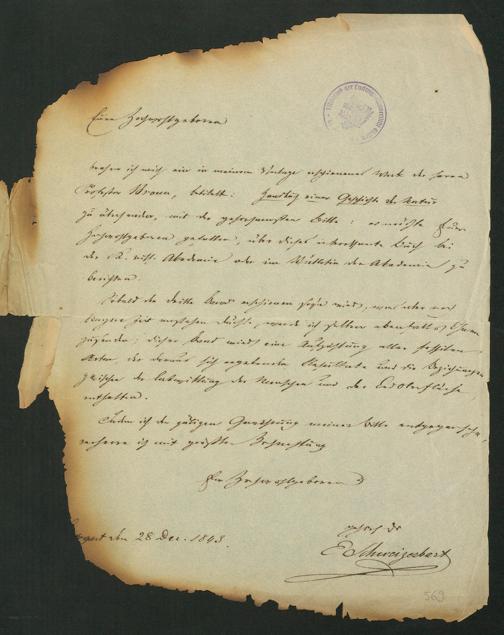 Euer Hochwohlgeboren
beehre ich mich ein in meinem Verlage erschienenes Werk des Herrn
Professor Bronn, betitelt: Handbuch einer Geschichte der Natur
zu übersenden, mit der gehorsamsten Bitte: es möchte Euer
Hochwohlgeboren gefallen, über dieses interessante Buch bei
der K. Akademie oder im Bulletin der Akademie zu
berichten.
Sobald der dritte Band erschienen seyn wird, was aber noch
längere Zeit anstehen dürfte, werde ich selben ebenfalls
zusenden; dieser Band wird eine Aufzählung aller fossilen
Arten, der daraus sich ergebenden Resultate und die Beziehungen
zwischen der Entwicklung des Menschen und der Erdoberfläche
enthalten.
Indem ich der gütigen Gewährung meiner Bitte entgegensehe,
verharre ich mit größter Hochachtung
Euer Hochwohlgeboren
den 28 Dec. 1843.
gehors. Dr
E Schweizerbart
569